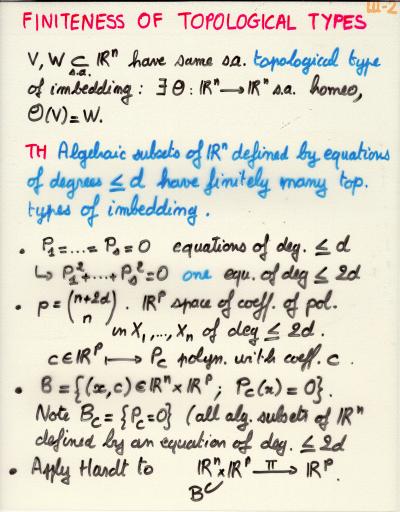 III-2
FINITENESS OF TOPOLOGICAL TYPES
V, W ⊂ ℝⁿ have same s.a. topological type
s.a.
of imbedding : ∃ Θ : ℝⁿ → ℝⁿ s.a. homeo,
Θ(V) = W.
TH Algebraic subsets of ℝⁿ defined by equations
of degrees ≤ d have finitely many top.
types of imbedding.
• P₁ = ... = Pₛ = 0 equations of deg. ≤ d
↳ P₁² + ... + Pₛ² = 0 one equ. of deg ≤ 2d
• p = (n+2d choose n). ℝᵖ space of coeff. of pol.
in X₁, ..., Xₙ of deg ≤ 2d.
c ∈ ℝᵖ ⟼ P_c polyn. with coeff. c.
• B = {(x,c) ∈ ℝⁿ × ℝᵖ ; P_c(x) = 0}.
Note B_c = {P_c = 0} (all alg. subsets of ℝⁿ
defined by an equation of deg. ≤ 2d
• Apply Hardt to ℝⁿ × ℝᵖ —π→ ℝᵖ.
B ⊂